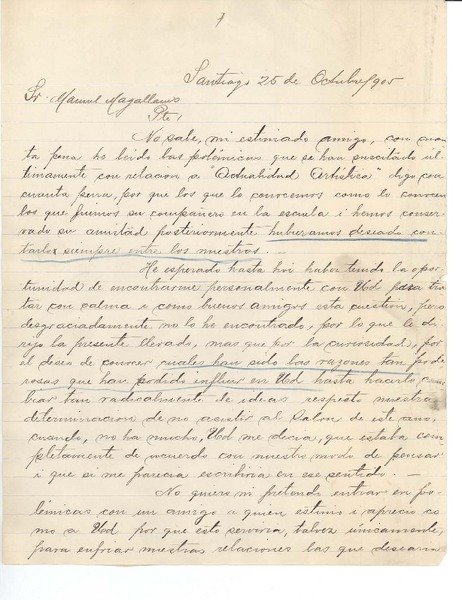 1
Santiago 25 de Octubre/905
Sr. Manuel Magallanes
Pte.
No sabe, mi estimado amigo, con cuan-
ta pena he leido las polémicas que se han suscitado úl-
timamente con relacion a "Actualidad Artística" digo con
cuanta pena, por que los que lo conocemos como lo conoce-
los que fuimos su compañero en la escuela i hemos conser-
vado su amistad posteriormente hubieramos deseado con-
tarlos siempre entre los nuestros. —
He esperado hasta hoi haber tenido la opor-
tunidad de encontrarme personalmente con Ud para tra-
tar con calma i como buenos amigos esta cuestion, pero
desgraciadamente no lo he encontrado, por lo que le di-
rijo la presente llevado, mas que por la curiosidad, por
el deseo de conocer cuales han sido las razones tan pode-
rosas que han podido influir en Ud hasta hacerlo cam-
biar tan radicalmente de ideas respecto nuestra
determinacion de no asistir al Salon de este año,
cuando, no ha mucho, Ud me decia, que estaba com-
pletamente de acuerdo con nuestro modo de pensar
i que si me parecia escribiria en ese sentido. —
No quiero ni pretendo entrar en po-
lémicas con un amigo a quien estimo i aprecio co-
mo a Ud por que esto serviria, talvez únicamente,
para enfriar nuestras relaciones las que desearia